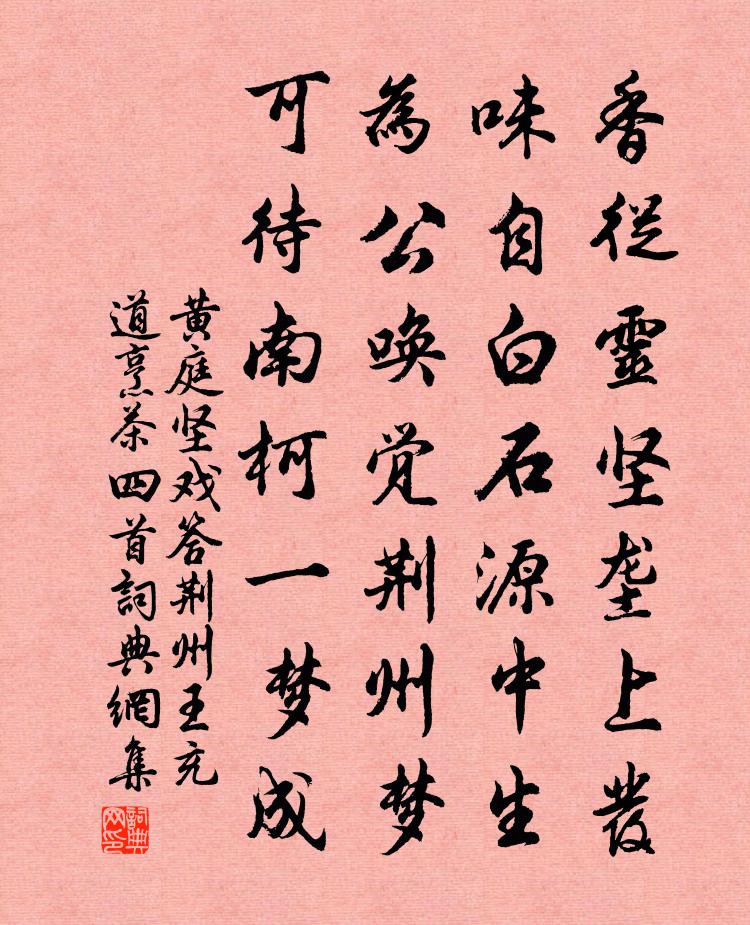 香從靈坚垄上發
味自白石源中生
為公唤觉荆州梦
可待南柯一梦成
黄庭坚戏答荆州王充
道烹茶四首詞典網集
詞典网印